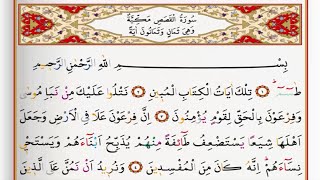 سُورَةُ الْقَصَصِ مَكِّيَّةٌ
وَهِيَ ثَمَانٍ وَثَمَانُونَ آيَةً
بِسْمِ اللّٰهِ الرَّحْمٰنِ الرَّحِيمِ
طٰسٓمٓ ﴿١﴾ تِلْكَ اٰيَاتُ الْكِتَابِ الْمُبِينِ ﴿٢﴾ نَتْلُوا عَلَيْكَ مِنْ نَبَاِ مُوسٰى
وَفِرْعَوْنَ بِالْحَقِّ لِقَوْمٍ يُؤْمِنُونَ ﴿٣﴾ اِنَّ فِرْعَوْنَ عَلَا فِي الْاَرْضِ وَجَعَلَ
اَهْلَهَا شِيَعًا يَسْتَضْعِفُ طَٓائِفَةً مِنْهُمْ يُذَبِّحُ اَبْنَٓاءَهُمْ وَيَسْتَحْيِ
نِسَٓاءَهُمْ اِنَّهُ كَانَ مِنَ الْمُفْسِدِينَ ﴿٤﴾ وَنُرِيدُ اَنْ نَمُنَّ عَلَى الَّذِينَ